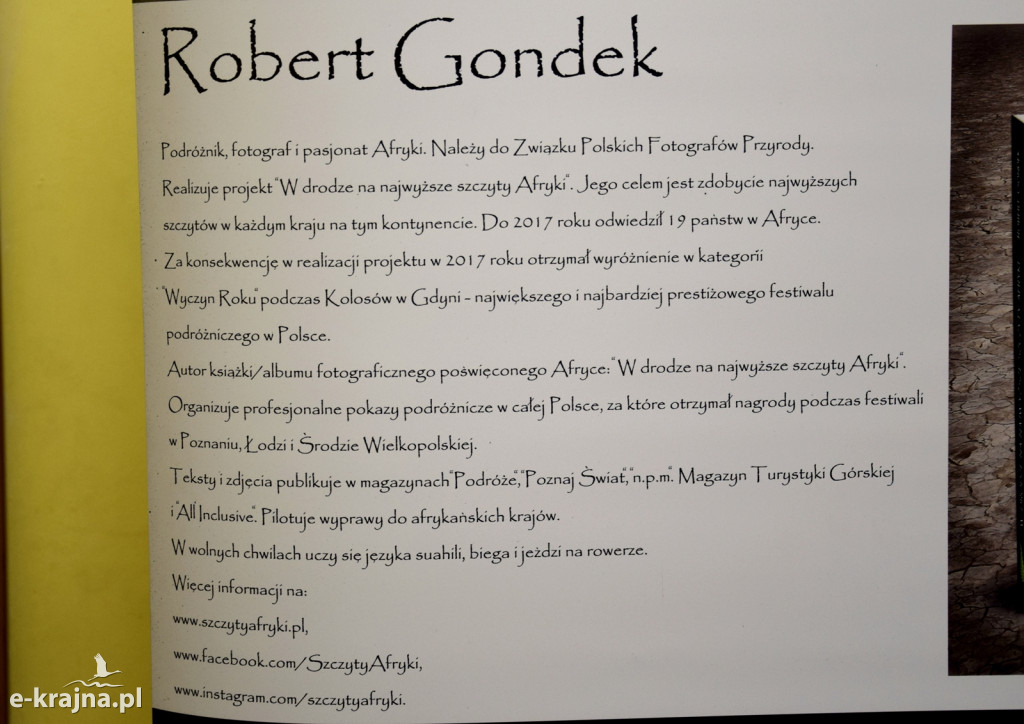 Robert Gondek
Podróżnik, fotograf i pasjonat Afryki. Należy do Związku Polskich Fotografów Przyrody.
Realizuje projekt "W drodze na najwyższe szczyty Afryki". Jego celem jest zdobycie najwyższych
szczytów w każdym kraju na tym kontynencie. Do 2017 roku odwiedził 19 państw w Afryce.
Za konsekwencję w realizacji projektu w 2017 roku otrzymał wyróżnienie w kategorii
"Wyczyn Roku" podczas Kolosów w Gdyni - największego i najbardziej prestiżowego festiwalu
podróżniczego w Polsce.
Autor książki/albumu fotograficznego poświęconego Afryce: "W drodze na najwyższe szczyty Afryki".
Organizuje profesjonalne pokazy podróżnicze w całej Polsce, za które otrzymał nagrody podczas festiwali
w Poznaniu, Łodzi i Środzie Wielkopolskiej.
Teksty i zdjęcia publikuje w magazynach "Podróże", "Poznaj Świat", "n.p.m". Magazyn Turystyki Górskiej
i "All Inclusive". Pilotuje wyprawy do afrykańskich krajów.
W wolnych chwilach uczy się języka suahili, biega i jeździ na rowerze.
Więcej informacji na:
www.szczytyafryki.pl,
www.facebook.com/SzczytyAfryki,
www.instagram.com/szczytyafryki.
e-krajna.pl